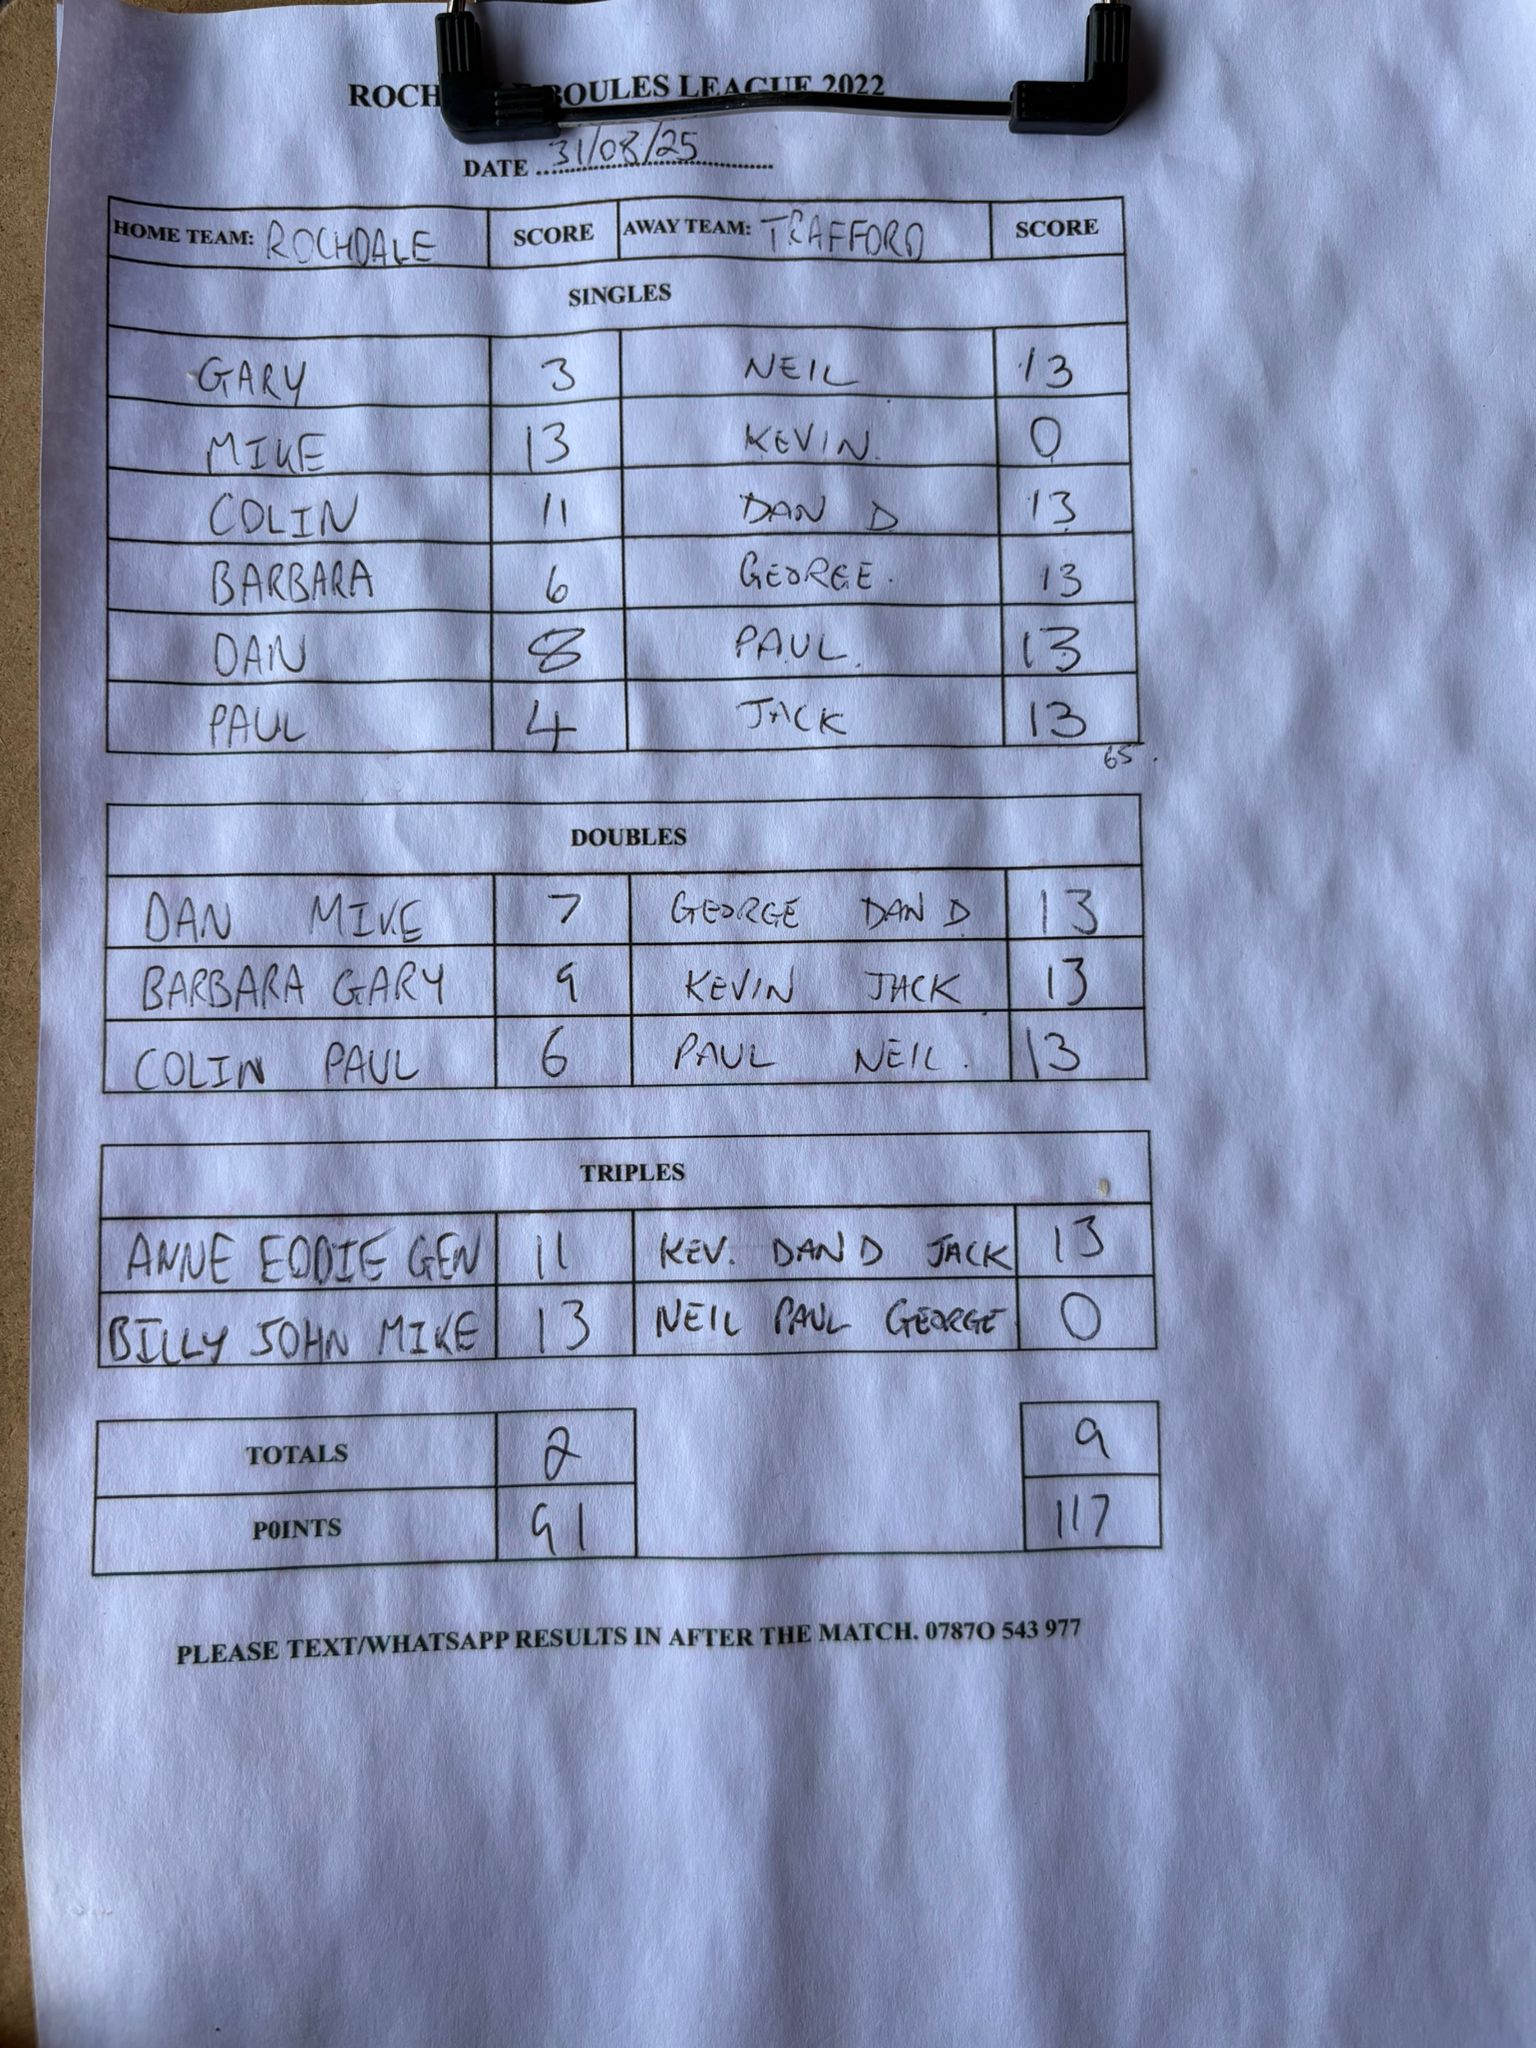 ROCH BOULES LEAGUE 2022
DATE 31/08/25
HOME TEAM: ROCHDALE SCORE AWAY TEAM: TRAFFORD SCORE
SINGLES
GARY 3 NEIL 13
MIKE 13 KEVIN. 0
COLIN 11 DAN D 13
BARBARA 6 GEORGE. 13
DAN 8 PAUL. 13
PAUL 4 JACK 13
65.
DOUBLES
DAN MIKE 7 GEORGE DAN D 13
BARBARA GARY 9 KEVIN JACK 13
COLIN PAUL 6 PAUL NEIL. 13
TRIPLES
ANNE EDDIE GEN 11 KEV. DAN D JACK 13
BILLY JOHN MIKE 13 NEIL PAUL GEORGE 0
TOTALS 2 9
P0INTS 91 117
PLEASE TEXT/WHATSAPP RESULTS IN AFTER THE MATCH. 0787O 543 977